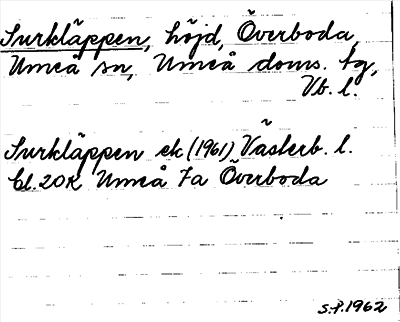 Surkläppen, höjd, Överboda,
Umeå sn, Umeå doms. tg,
Vb. l.
Surkläppen ek (1961) Västerb. l.
bl. 20K Umeå 7a Överboda
S.P. 1962